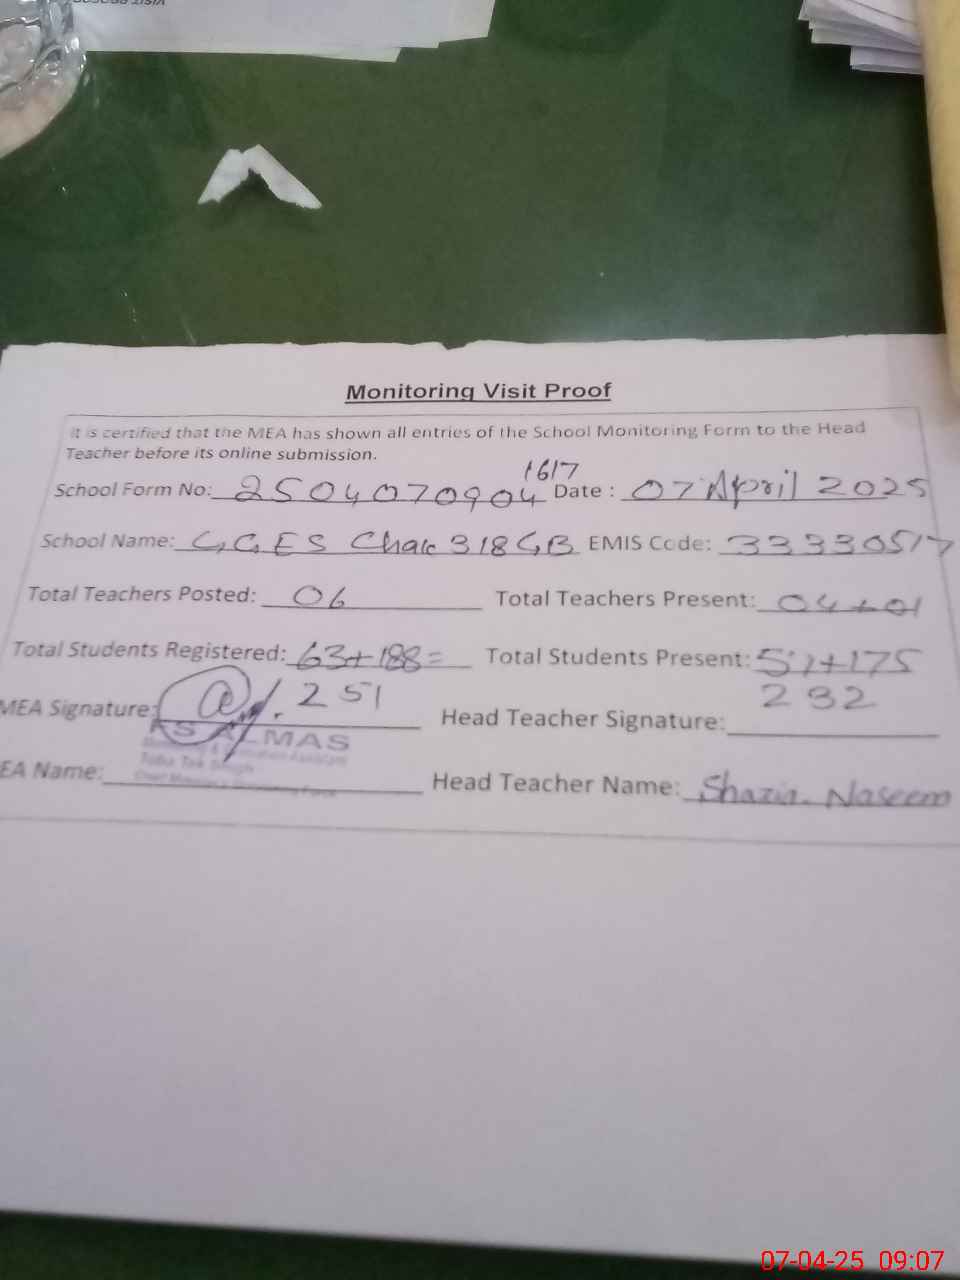 Monitoring Visit Proof
It is certified that the MEA has shown all entries of the School Monitoring Form to the Head
Teacher before its online submission.
1617
School Form No: 2504070904 Date : 07 April 2025
School Name: GGES Chak 318GB EMIS Code: 33330517
Total Teachers Posted: 06 Total Teachers Present: 04+01
Total Students Registered: 63+188= Total Students Present: 57+175
251 232
MEA Signature: Head Teacher Signature:
ALMAS
Toba Tek Singh
EA Name: Head Teacher Name: Shazia Naseem
07-04-25 09:07